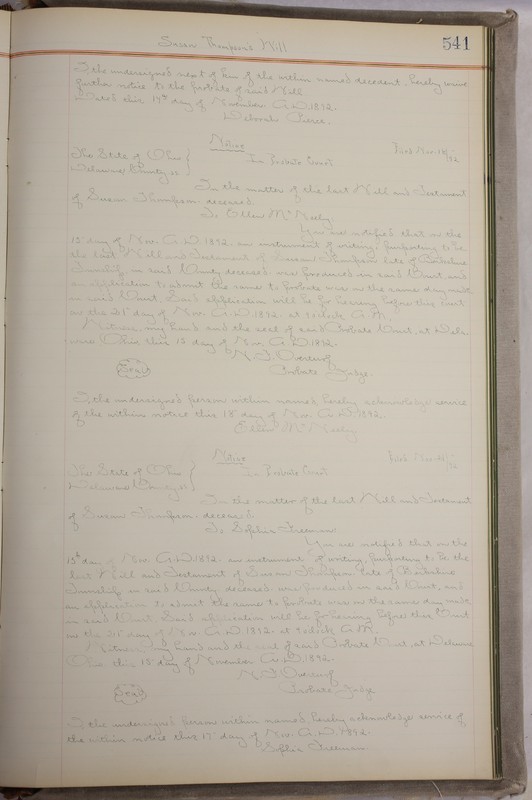 541
Susan Thompson's Will
I, the undersigned next of kin of the within named decedent, hereby waive
further notice to the probate of said Will.
Dated this 17th day of November A.D. 1892.
Deborah
Notice
Filed Nov. 18/92
The State of Ohio
Delaware County, ss
In Probate Court
In the matter of the last Will and Testament
of Susan Thompson deceased.
To Ellen McNeely.
You are notified that on the
15 day of Nov. A.D. 1892. an instrument of writing, purporting to be
the last Will and Testament of Susan Thompson late of Berkshire
Township in said County deceased was produced in said Court, and
an application to admit the same to probate was on the same day made
in said Court. Said application will be for hearing before this Court
on the 21st day of Nov. A.D. 1892. at o'clock A.M.
Witness, my hand and the seal of said Probate Court, at Dela-
ware Ohio this 15 day of Nov. A.D. 1892.
Seal
Probate Judge.
I, the undersigned person within named, hereby acknowledge service
of the within notice this 18 day of Nov. A.D. 1892.
Ellen McNeely
Notice
Filed Nov.
/92
The State of Ohio
Delaware County, ss
In Probate Court
In the matter of the last Will and Testament
of Susan Thompson deceased
To Sophia Freeman
You are notified that on the
15th day of Nov. A.D. 1892. an instrument of writing, purporting to be the
last Will and Testament of Susan Thompson late of Berkshire
Township in said County deceased, was produced in said Court, and
an application to admit the same to probate was on the same day made
in said Court. Said application will be for hearing before this Court
on the 21st day of Nov. A.D. 1892. at o'clock A.M.
Witness my hand and the seal of said Probate Court, at Delaware
Ohio this 15 day of November A.D. 1892.
Seal
Probate Judge
I, the undersigned person within named, hereby acknowledge service of
the within notice this 17 day of Nov. A.D. 1892.
Sophia Freeman